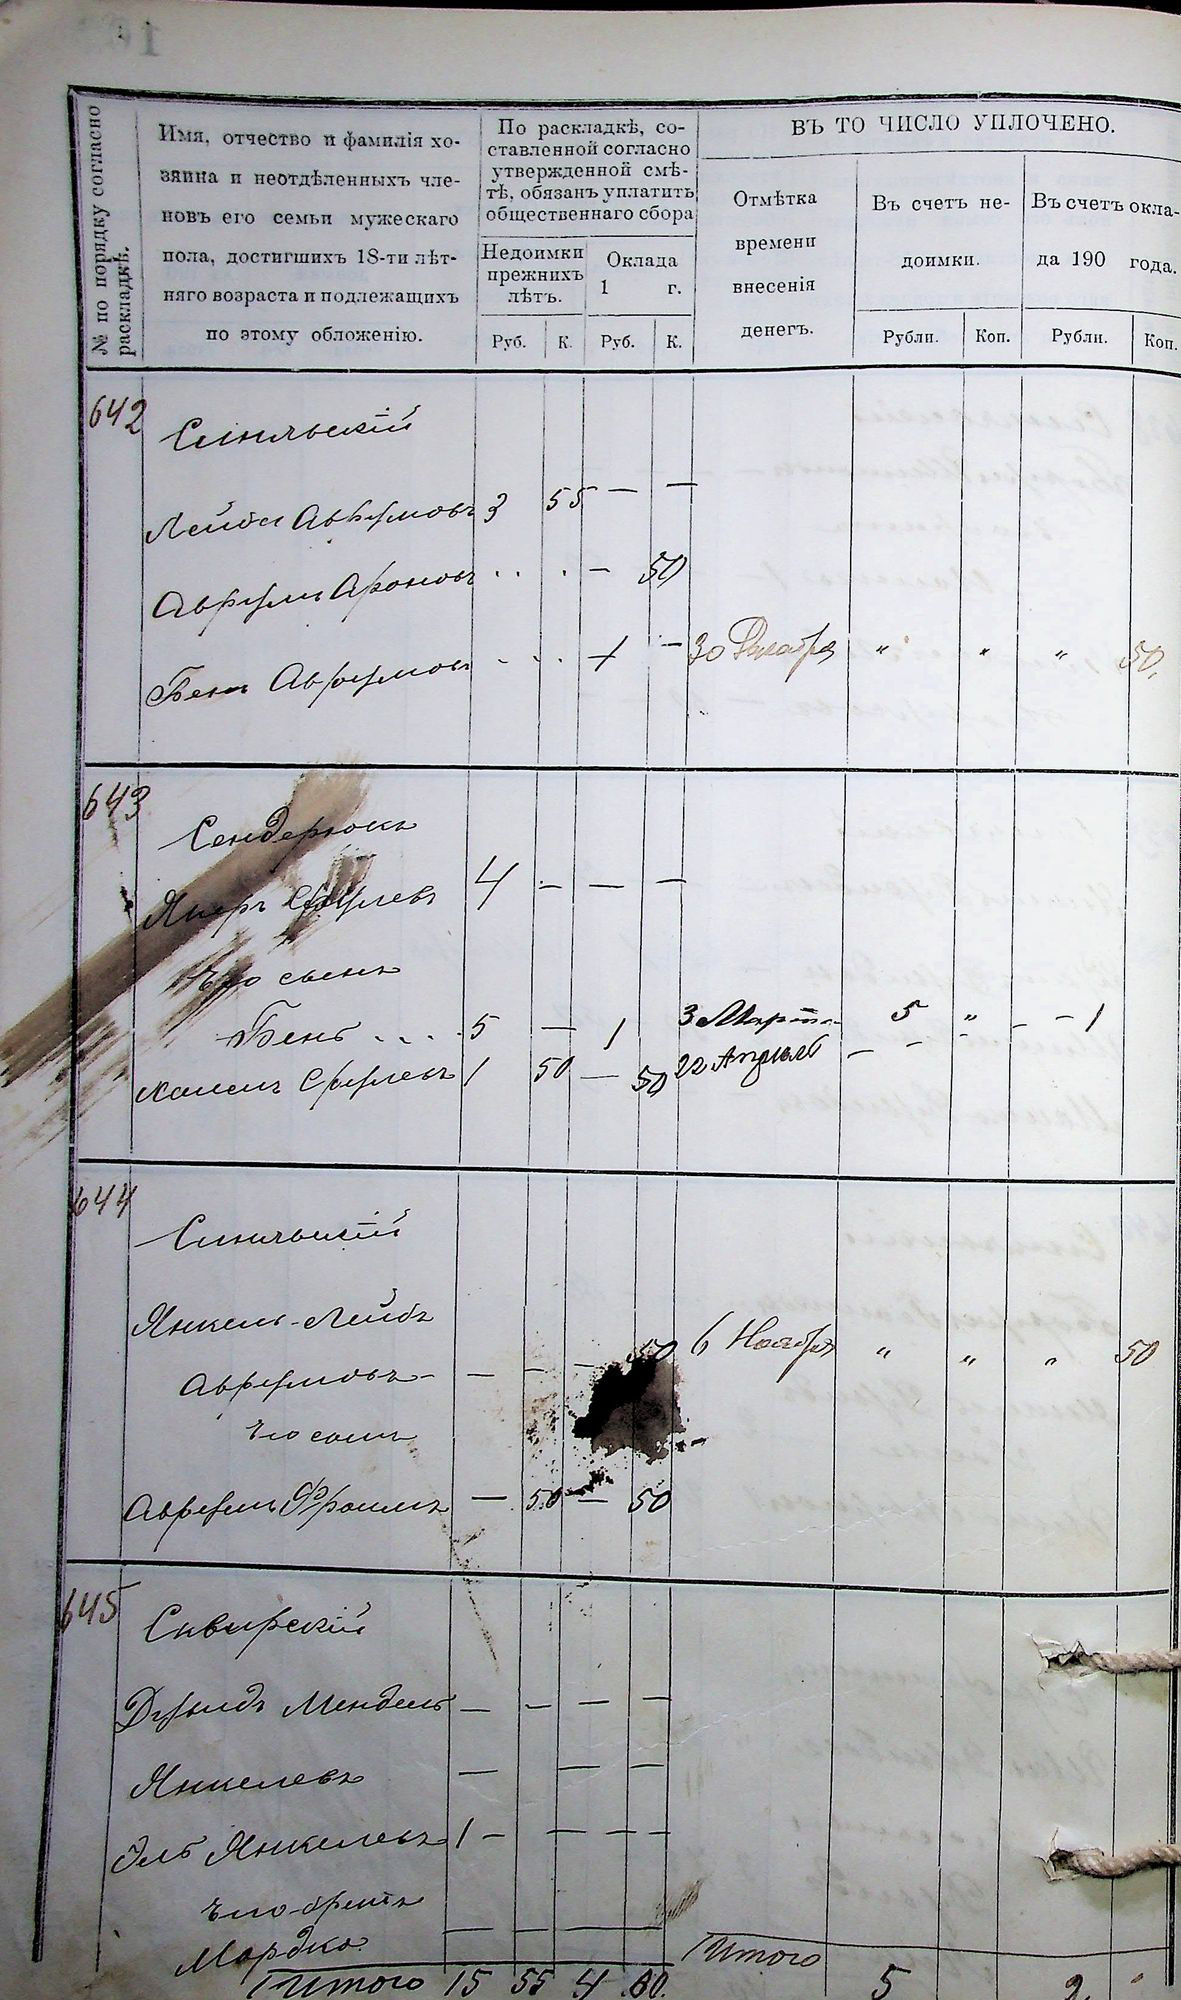 № по порядку согласно
раскладкѣ.
Имя, отчество и фамилія хо-
зяина и неотдѣленныхъ чле-
новъ его семьи мужескаго
пола, достигшихъ 18-ти лѣт-
няго возраста и подлежащихъ
по этому обложенію.
По раскладкѣ, со-
ставленной согласно
утвержденной смѣ-
тѣ, обязанъ уплатить
общественнаго сбора
Недоимки
прежнихъ
лѣтъ.
Оклада
1 г.
Руб. К. Руб. К.
ВЪ ТО ЧИСЛО УПЛОЧЕНО.
Отмѣтка
времени
внесенія
денегъ.
Въ счетъ не-
доимки.
Въ счетъ окла-
да 190 года.
Рубли. Коп. Рубли. Коп.
642
Лейба Аврумовъ 3 55 — —
Аврумъ Ароновъ . . . — 50
Бенъ Аврумовъ . . . 1 — 30 Декабря " " " 50.
643
Сендерюкъ
4 — — —
Его сынъ
Бенъ . . . 5 — 1 3 Марта 5 " — — 1
1 50 — 50 22 Апрѣля — — —
644
Янкель-Лейбъ
Аврумовъ — — — — 50 6 Ноября " " " 50
Его сынъ
Аврумъ Фроимъ — 50 — 50
645
Сквирскій
Мендель — — — —
Янкелевъ — — —
Янкелевъ 1 — — — —
Его братъ
Мордко
Итого 15 55 4 Итого 5 2